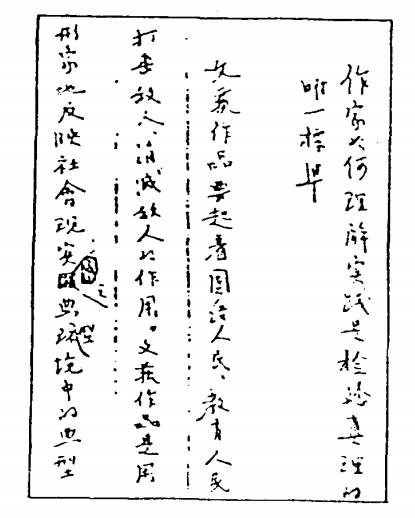 作家如何理解实践是检验真理的
唯一標準
文藝作品要起着團結人民、教育人民
打击敌人、消滅敌人的作用。文藝作品是用
形象地反映社會現实典型环境中的典型